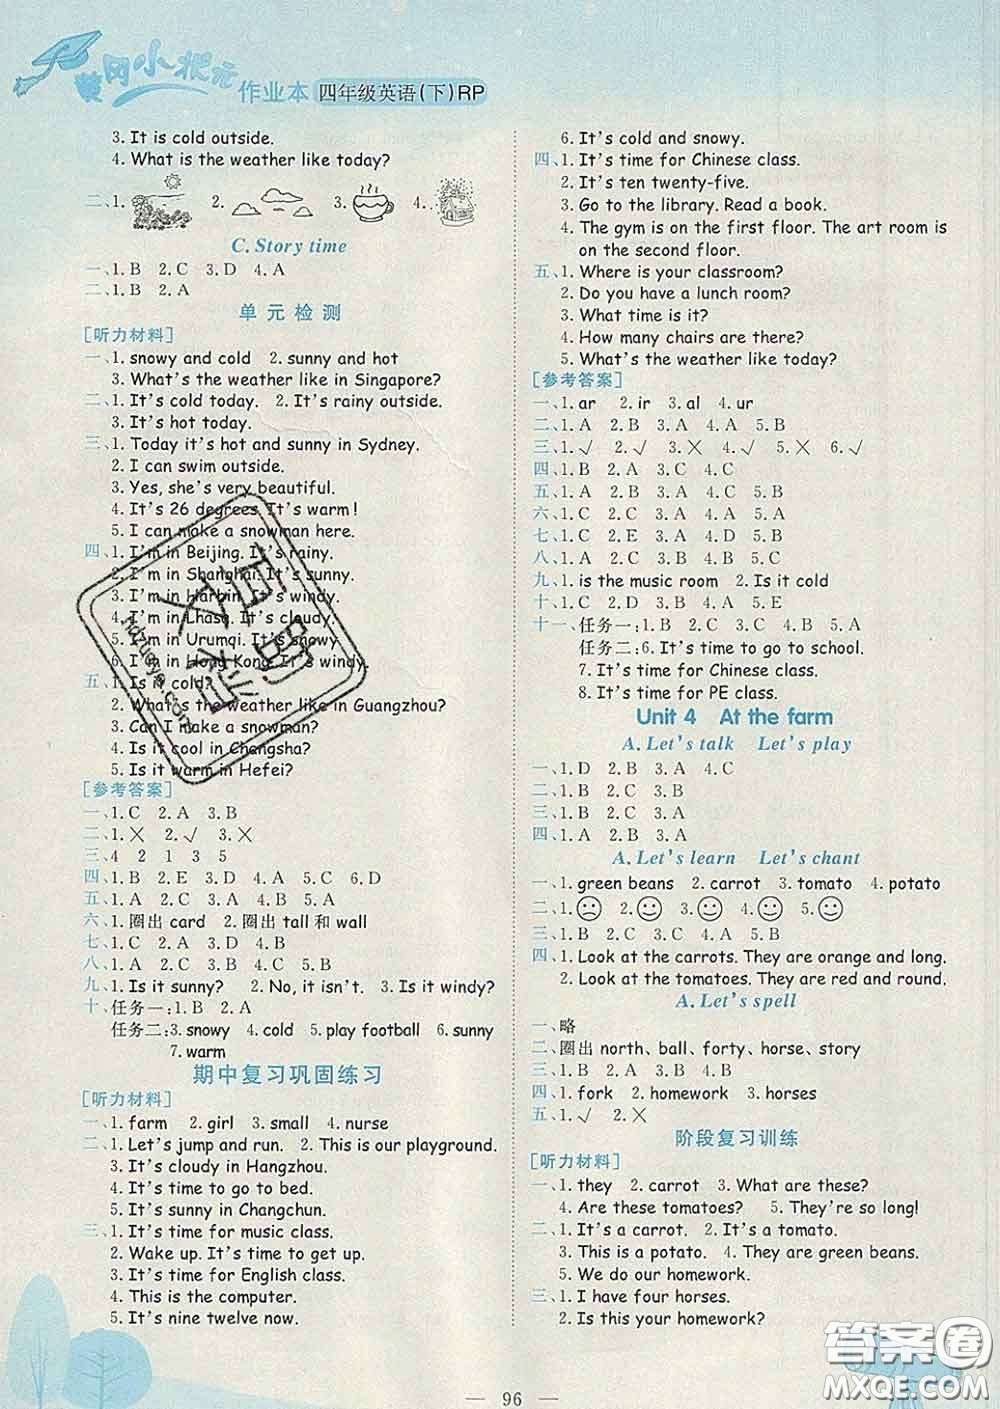 黄冈小状元
作业本 四年级英语(下)RP
3. It is cold outside.
4. What is the weather like today?
二、1. 2. 3. 4.
C. Story time
一、1. B 2. C 3. D 4. A
二、1. B 2. A
单元检测
[听力材料]
一、1. snowy and cold 2. sunny and hot
3. What's the weather like in Singapore?
二、1. It's cold today. 2. It's rainy outside.
3. It's hot today.
三、1. Today it's hot and sunny in Sydney.
2. I can swim outside.
3. Yes, she's very beautiful.
4. It's 26 degrees. It's warm!
5. I can make a snowman here.
四、1. I'm in Beijing. It's rainy.
2. I'm in Shanghai. It's sunny.
3. I'm in Harbin. It's windy.
4. I'm in Lhasa. It's cloudy.
5. I'm in Urumqi. It's snowy.
6. I'm in Hong Kong. It's windy.
五、1. Is it cold?
2. What's the weather like in Guangzhou?
3. Can I make a snowman?
4. Is it cool in Changsha?
5. Is it warm in Hefei?
[参考答案]
一、1. C 2. A 3. B
二、1. ✕ 2. √ 3. ✕
三、4 2 1 3 5
四、1. B 2. E 3. D 4. A 5. C 6. D
五、1. A 2. C 3. A 4. B 5. C
六、1. 圈出 card 2. 圈出 tall 和 wall
七、1. C 2. A 3. D 4. B
八、1. A 2. C 3. B 4. C
九、1. Is it sunny? 2. No, it isn't. 3. Is it windy?
十、任务一:1. B 2. A
任务二:3. snowy 4. cold 5. play football 6. sunny
7. warm
期中复习巩固练习
[听力材料]
一、1. farm 2. girl 3. small 4. nurse
二、1. Let's jump and run. 2. This is our playground.
3. It's cloudy in Hangzhou.
4. It's time to go to bed.
5. It's sunny in Changchun.
三、1. It's time for music class.
2. Wake up. It's time to get up.
3. It's time for English class.
4. This is the computer.
5. It's nine twelve now.
6. It's cold and snowy.
四、1. It's time for Chinese class.
2. It's ten twenty-five.
3. Go to the library. Read a book.
4. The gym is on the first floor. The art room is
on the second floor.
五、1. Where is your classroom?
2. Do you have a lunch room?
3. What time is it?
4. How many chairs are there?
5. What's the weather like today?
[参考答案]
一、1. ar 2. ir 3. al 4. ur
二、1. A 2. B 3. A 4. A 5. B
三、1. √ 2. √ 3. ✕ 4. √ 5. ✕ 6. √
四、1. B 2. A 3. C 4. C
五、1. A 2. B 3. A 4. C 5. B
六、1. C 2. C 3. A 4. A 5. A
七、1. C 2. E 3. A 4. D 5. B
八、1. A 2. C 3. B 4. C 5. A
九、1. is the music room 2. Is it cold
十、1. C 2. D 3. B 4. A 5. E
十一、任务一:1. B 2. C 3. C 4. B 5. A
任务二:6. It's time to go to school.
7. It's time for Chinese class.
8. It's time for PE class.
Unit 4 At the farm
A. Let's talk Let's play
一、1. D 2. B 3. A 4. C
二、1. B 2. C 3. B
三、1. B 2. C 3. A
四、1. A 2. B 3. A
A. Let's learn Let's chant
一、1. green beans 2. carrot 3. tomato 4. potato
二、1. 2. 3. 4. 5.
三、1. B 2. C 3. C 4. A 5. B
四、1. Look at the carrots. They are orange and long.
2. Look at the tomatoes. They are red and round.
A. Let's spell
一、略
二、圈出 north、ball、forty、horse、story
三、1. B 2. A 3. B 4. C
四、1. fork 2. homework 3. horses
五、1. √ 2. ✕
阶段复习训练
[听力材料]
一、1. they 2. carrot 3. What are these?
4. Are these tomatoes? 5. They're so long!
二、1. It's a carrot. 2. It's a tomato.
3. This is a potato. 4. They are green beans.
5. We do our homework.
三、1. I have four horses.
2. Is this your homework?
— 96 —
答案圈
MXQE.COM